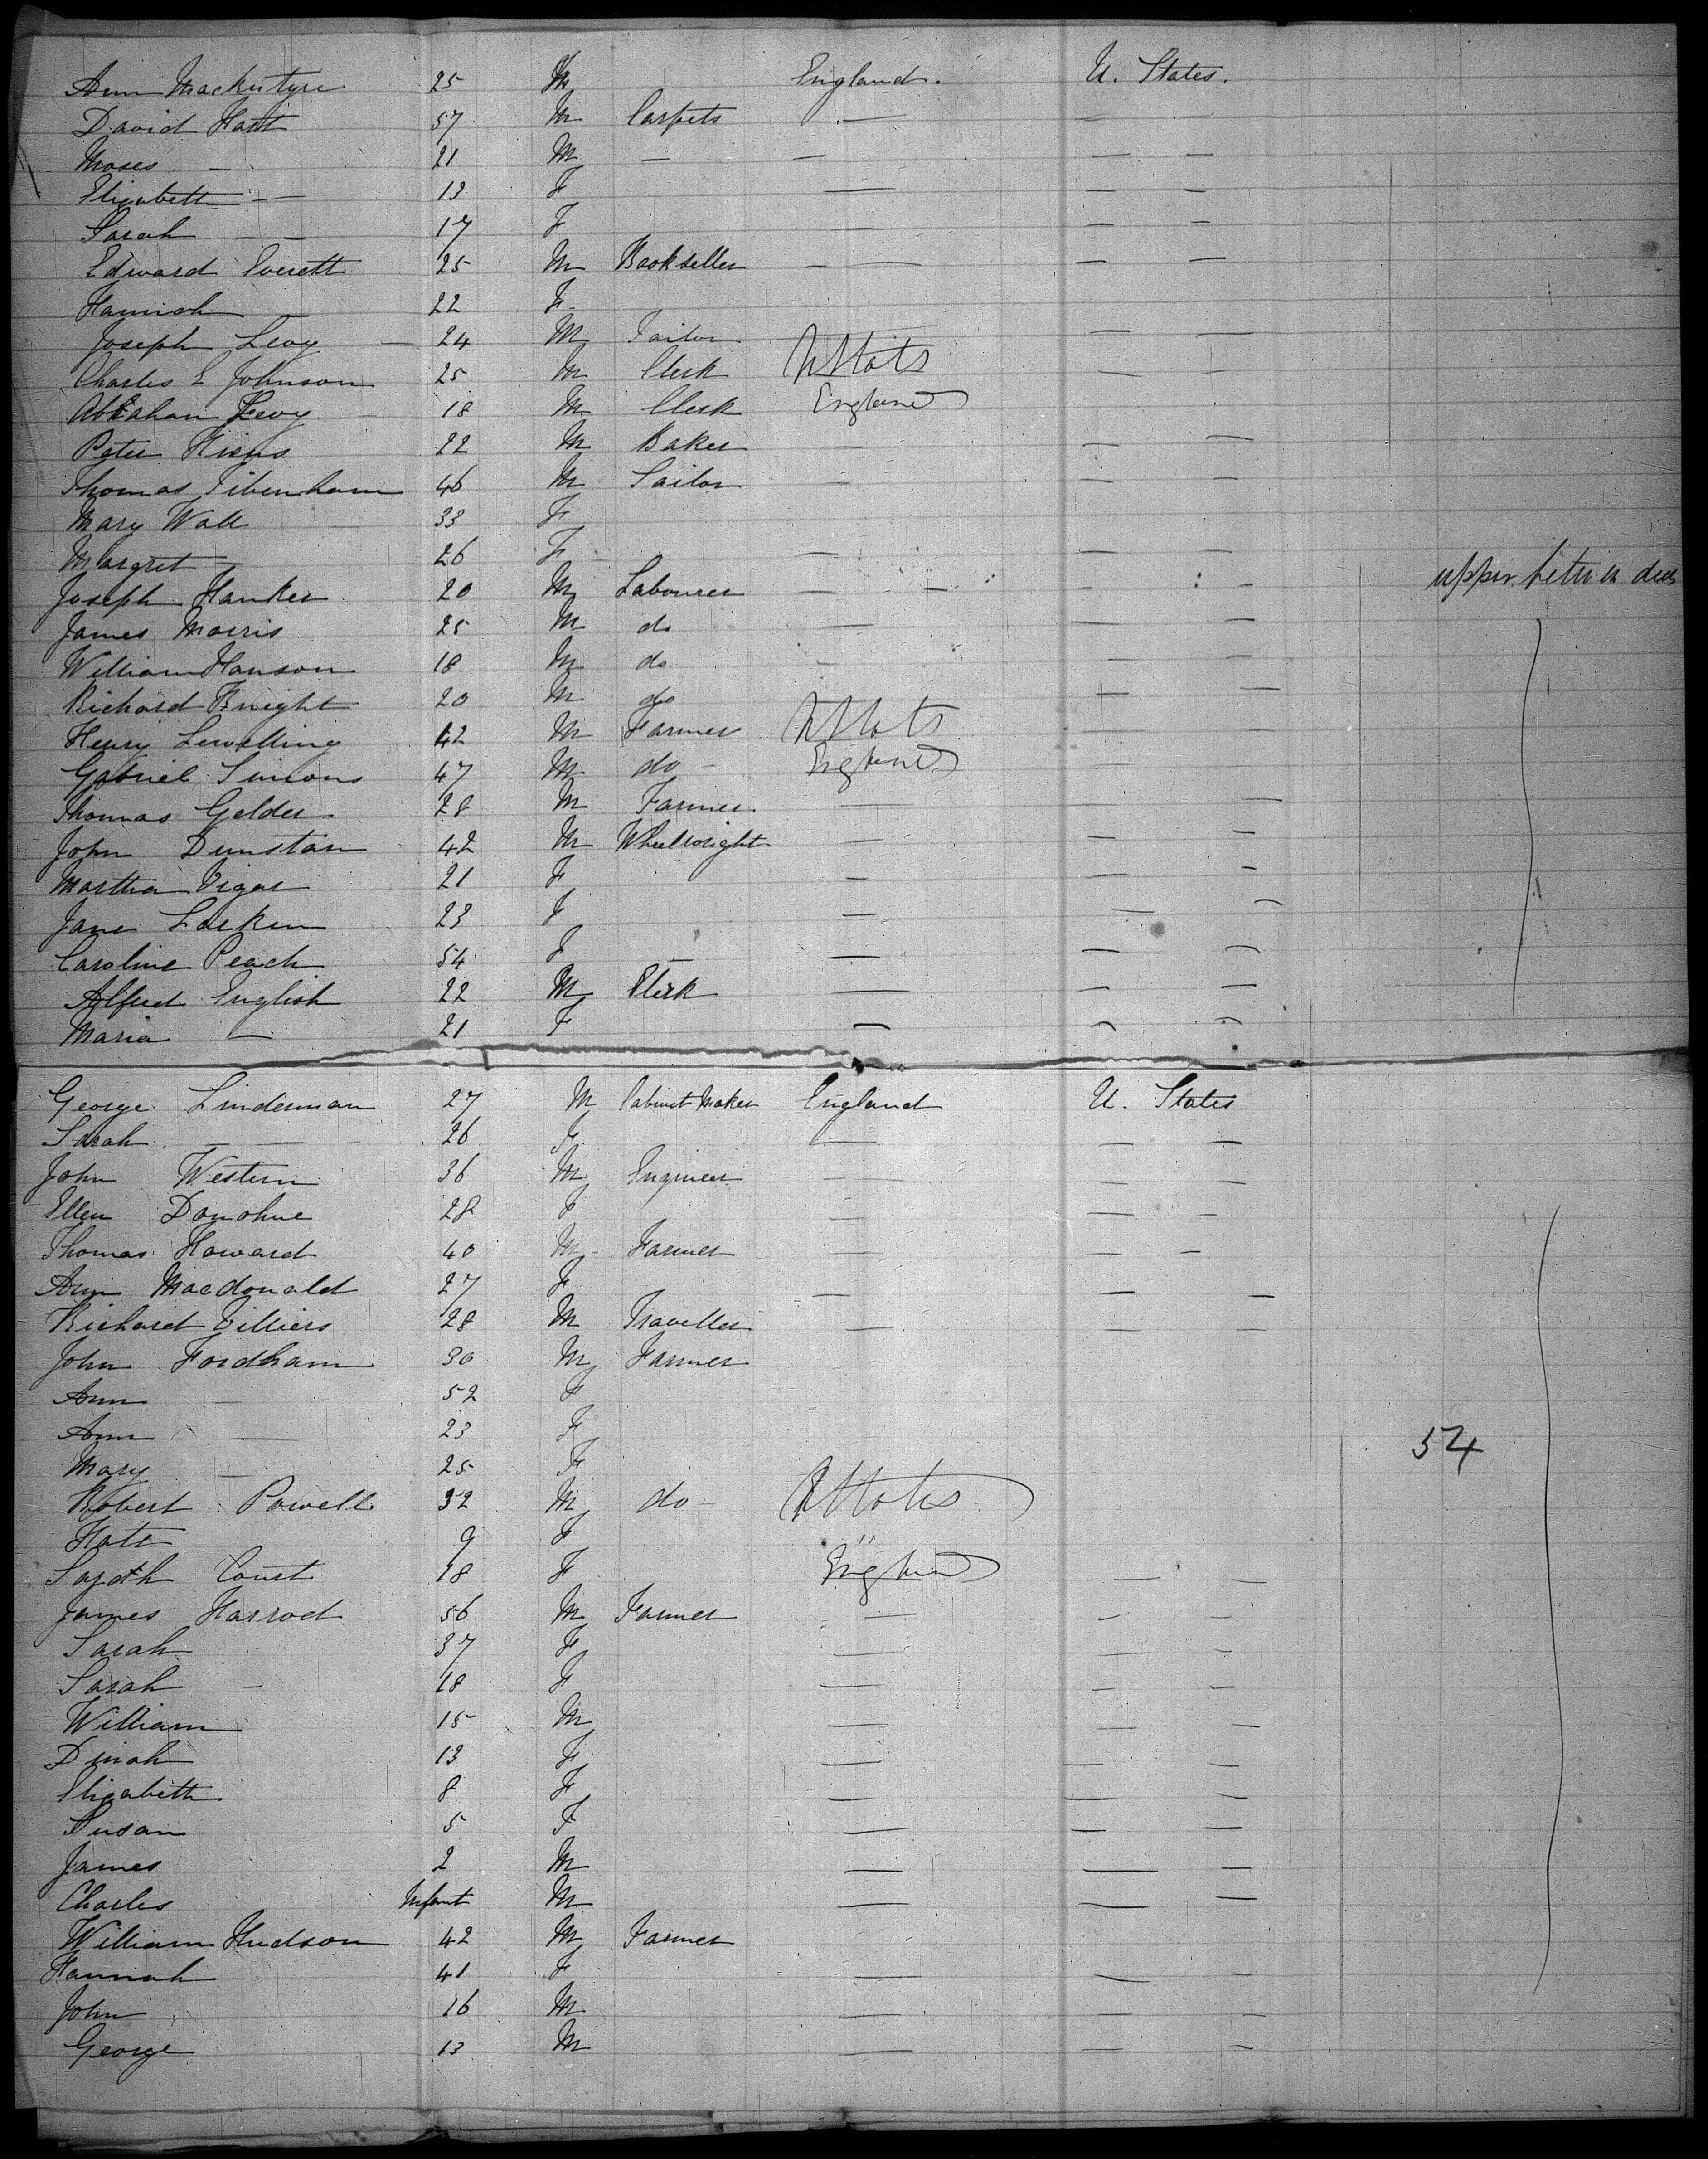 Ann Mackentyre 25 M England. U. States.
David Hart 57 M Carpets — — —
Moses — 21 M — — — —
Elizabeth — — 13 F — — —
Sarah — — 17 F — — —
Edward Everett 25 M Bookseller — — — —
Hannah — 22 F
Joseph Levy — 24 M Tailor — — —
Charles E Johnson 25 M Clerk UStats — —
Abraham Levy — 18 M Clerk England
Peter 22 M Baker — — —
Thomas Tibenham 46 M Sailor — — —
Mary Wall 33 F
Margret — 26 F — — —
Joseph Hanker 20 M Labourer — — — — upper betw n deck
James Morris 25 M do — — —
William Hanson 18 M do — — —
Richard Knight 20 M do — —
Henry Lewelling 42 M Farmer UStats — —
Gabriel Simons 47 M do — England
Thomas Gelder 28 M Farmer — —
John Dunstan 42 M Wheelwright — — —
Martha Vigar 21 F — — —
Jane Larken 23 F — — —
Caroline Peach 54 F — — — —
Alfred English 22 M Clerk — — —
Maria — 21 F — — —
George Linderman 27 M Cabinet Maker England U. States
Sarah — — — 26 F — — —
John Western 36 M Engineer — — — —
Ellen Donohue 28 F — — —
Thomas Howard 40 M Farmer — — —
Ann Macdonald 27 F — — —
Richard Villiers 28 M Traveller — — —
John Fordham 30 M Farmer
Ann — 52 F
Ann — 23 F 54
Mary — 25 F
Robert Powell 32 M do — UStates
Kate 9 F "
Sarah Court 18 F England — —
James Harrod 56 M Farmer — — —
Sarah 37 F — — —
Sarah — 18 F — — —
William 15 M — — —
Dinah 13 F — — —
Elizabeth 8 F — — —
Susan 5 F — — —
James 2 M — — —
Charles Infant M — — —
William Hudson 42 M Farmer
Hannah 41 F — — —
John 16 M — — —
George 13 M — — —